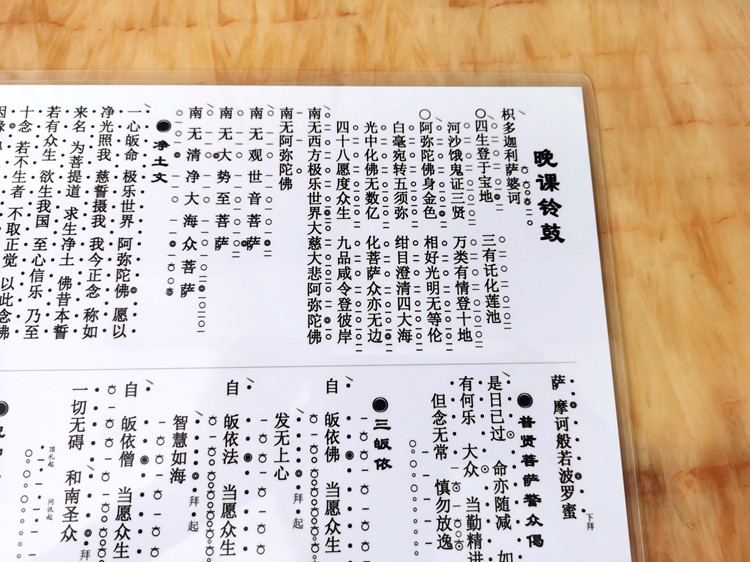 晚课铃鼓
枳多迦利萨婆诃
四生登于宝地 三有讬化莲池
河沙饿鬼证三贤 万类有情登十地
阿弥陀佛身金色 相好光明无等伦
白毫宛转五须弥 绀目澄清四大海
光中化佛无数亿 化菩萨众亦无边
四十八愿度众生 九品咸令登彼岸
南无西方极乐世界大慈大悲阿弥陀佛
南无阿弥陀佛
南无观世音菩萨
南无大势至菩萨
南无清净大海众菩萨
净土文
一心皈命 极乐世界 阿弥陀佛 愿以
净光照我 慈誓摄我 我今正念 称如
来名 为菩提道 求生净土 佛昔本誓
若有众生 欲生我国 至心信乐 乃至
十念 若不生者 不取正觉 以此念佛
萨 摩诃般若波罗蜜 下拜
普贤菩萨警众偈
是日已过 命亦随减 如
有何乐 大众 当勤精进
但念无常 慎勿放逸
三皈依
自 皈依佛 当愿众生
发无上心 拜 起
自 皈依法 当愿众生
智慧如海 拜 起
自 皈依僧 当愿众生
一切无碍 和南圣众 拜
顶礼起 问讯起